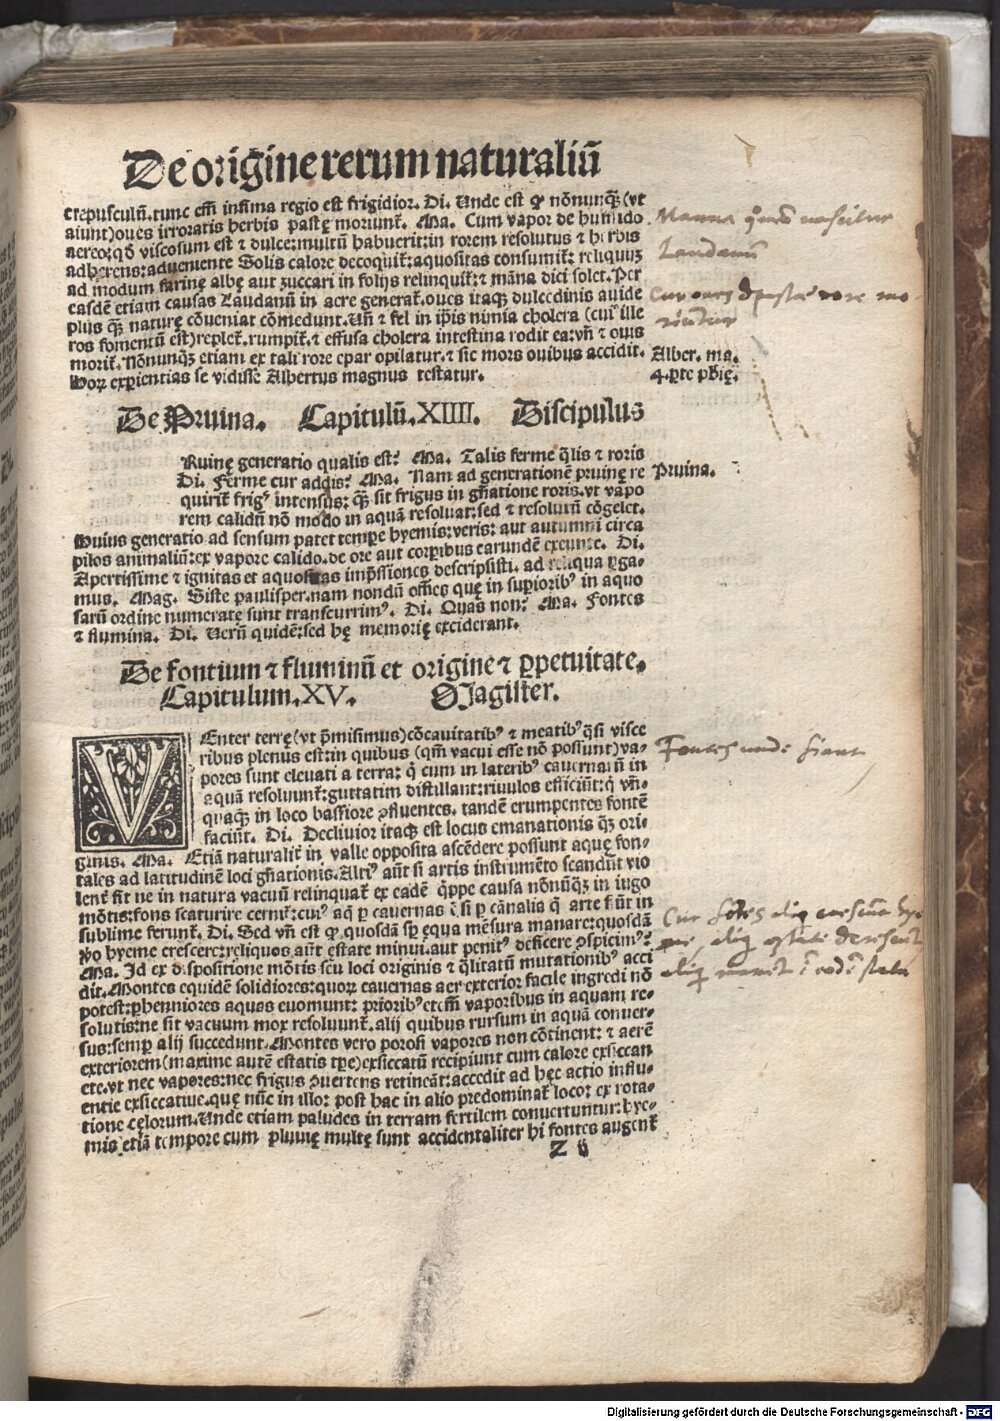 De origine rerum naturaliũ
crepusculũ. tunc em̃ infima regio est frigidior. Di. Unde est ꝙ nõnunqꝫ (vt
aiunt) oues irroratis herbis pastę moriunt̃. Ma. Cum vapor de humido
aereo: qđ viscosum est ⁊ dulce: multũ habuerit: in rorem resolutus ⁊ herbis
adherens: adueniente Solis calore decoquit̃: aquositas consumit̃: reliquũꝫ
ad modum farinę albę aut zuccari in folijs relinquit̃: ⁊ mãna dici solet. Per
easdẽ etiam causas Laudanũ in aere generat̃. oues itaqꝫ dulcedinis auide
plus qꝫ naturę cõueniat cõmedunt. Uñ ⁊ fel in ip̃is nimia cholera (cui⁹ ille
ros fomentũ est) replet̃. rumpit̃. ⁊ effusa cholera intestina rodit ea: vñ ⁊ ouis
morit̃. Nõnunqꝫ etiam ex tali rore epar opilatur. ⁊ sic mors ouibus accidit.
Hoꝝ expientias se vidisse Albertus magnus testatur.
Manna quõ nascitur
Laudanũ
Cur oues depastæ rore mo-
riuntur
Alber. ma.
4. ꝑte pħię.
De Pruina. Capitulũ. XIIII. Discipulus
Ruinę generatio qualis est? Ma. Talis ferme q̃lis ⁊ roris
Di. Ferme cur addis? Ma. Nam ad generationẽ pruinę re
quirit̃ frig⁹ intensus: qꝫ sit frigus in gñatione roris. vt vapo
rem calidũ nõ modo in aquã resoluat: sed ⁊ resolutũ cõgelet.
Huius generatio ad sensum patet tempe hyemis: veris: aut autumni circa
pilos animaliũ: ex vapore calido. de ore aut corꝑibus earundẽ exeunte. Di.
Apertissime ⁊ ignitas et aquositas imp̃ssiones descripsisti. ad reliqua ꝑga-
mus. Mag. Siste paulisper. nam nondũ oẽs quę in supiorib⁹ in aquo
sarũ ordine numeratę sunt transcurrim⁹. Di. Quas non? Ma. Fontes
⁊ flumina. Di. Uerũ quidẽ: sed hę memorię exciderant.
Pruina.
De fontium ⁊ fluminũ et origine ⁊ ꝑpetuitate.
Capitulum. XV. Magister.
VEnter terrę (vt p̃misimus) cõcauitatib⁹ ⁊ meatib⁹ q̃si visce
ribus plenus est: in quibus (qm̃ vacui esse nõ possunt) va-
pores sunt eleuati a terra: q̃ cum in laterib⁹ cauernarũ in
aquã resoluunt̃: guttatim distillant: riuulos efficiũt: q̃ vñ-
quaqꝫ in loco bassiore ꝓfluentes. tandẽ erumpentes fontẽ
faciũt. Di. Decliuior itaqꝫ est locus emanationis qꝫ ori-
ginis. Ma. Etiã naturalit̃ in valle opposita ascẽdere possunt aquę fon-
tales ad latitudinẽ loci gñationis. Alti⁹ aũt si artis instrumẽto scandũt vio
lent̃ fit ne in natura vacuũ relinquat̃ ex eadẽ q̃ppe causa nõnũqꝫ in iugo
mõtis: fons scaturire cernit̃: cui⁹ aq̃ ꝑ cauernas ẽ si ꝑ cãnalia q̃ arte fiũt in
sublime ferunt̃. Di. Sed vñ est ꝙ quosdã sp̃ equa mẽsura manare: quosdã
ỹo hyeme crescere: reliquos aũt estate minui. aut penit⁹ deficere ꝓspicim⁹?
Ma. Id ex dispositione mõtis seu loci originis ⁊ q̃litatũ mutationib⁹ acci
dit. Montes equidẽ solidiores: quoꝝ cauernas aer exterior facile ingredi nõ
potest: ꝑhenniores aquas euomunt: priorib⁹ etem̃ vaporibus in aquam re-
solutis: ne sit vacuum mox resoluunt̃. alij quibus rursum in aquã conuer-
sus: semꝑ alij succedunt. Montes vero porosi vapores non cõtinent: ⁊ aerẽ
exteriorem (maxime autẽ estatis tp̃e) exsiccatũ recipiunt cum calore exsiccan
ete. vt nec vapores: nec frigus ꝯuertens retineãt: accedit ad hęc actio influ-
entie exsiccatiue. que nũc in illo: post hac in alio predominat̃ loco: ex rota-
tione cęlorum. Unde etiam paludes in terram fertilem conuertuntur: hye-
mis etiã tempore cum pluuię multę sunt accidentaliter hi fontes augent̃
Fontes unde fiant
Cur fõtes aliq̃ crescũt hye
me, aliq̃ estate decrescũt
aliq̃ manẽt ĩ eodẽ statu
Z ij
Digitalisierung gefördert durch die Deutsche Forschungsgemeinschaft - DFG